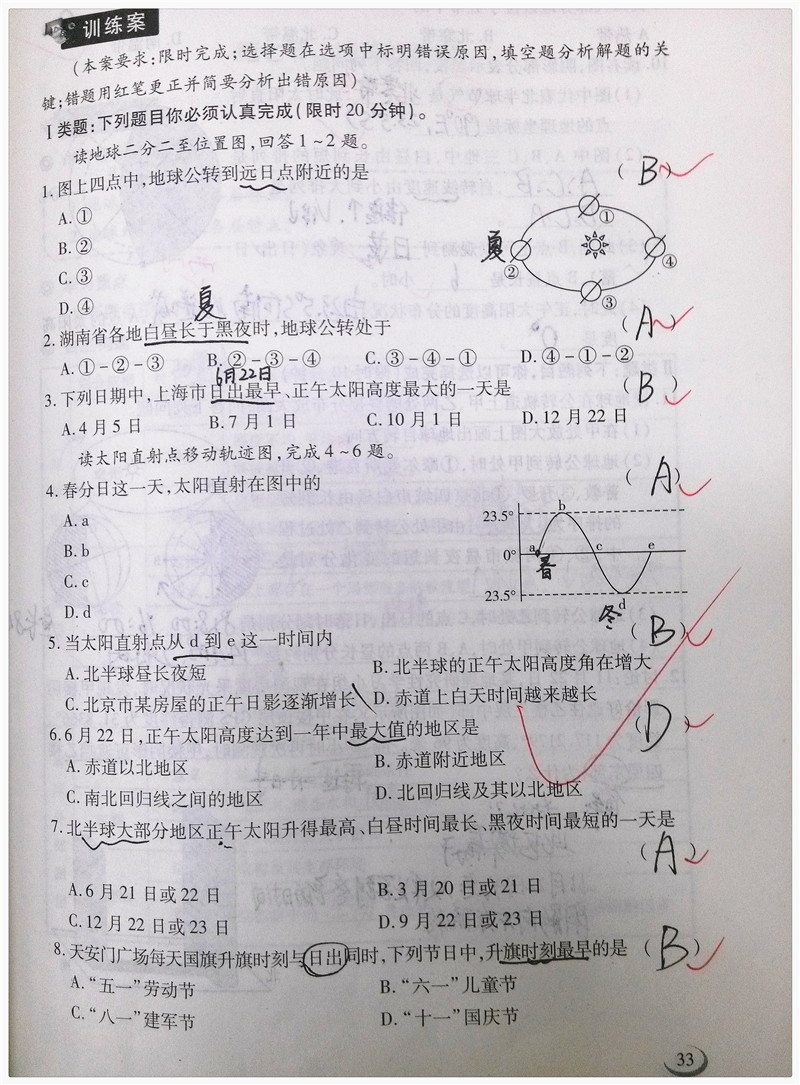 训练案
(本案要求:限时完成;选择题在选项中标明错误原因,填空题分析解题的关
键;错题用红笔更正并简要分析出错原因)
Ⅰ类题:下列题目你必须认真完成(限时20分钟)。
读地球二分二至位置图,回答1~2题。
1.图上四点中,地球公转到远日点附近的是 (B)
A.①
B.②
C.③
D.④
夏
①
②
③
④
夏
2.湖南省各地白昼长于黑夜时,地球公转处于 (A)
A.①-②-③ B.②-③-④ C.③-④-① D.④-①-②
6月22日
3.下列日期中,上海市日出最早、正午太阳高度最大的一天是 (B)
A.4月5日 B.7月1日 C.10月1日 D.12月22日
读太阳直射点移动轨迹图,完成4~6题。
4.春分日这一天,太阳直射在图中的 (A)
A.a
B.b
C.c
D.d
23.5°
0°
23.5°
a
b
c
d
e
春
冬
5.当太阳直射点从d到e这一时间内 (B)
A.北半球昼长夜短 B.北半球的正午太阳高度角在增大
C.北京市某房屋的正午日影逐渐增长 D.赤道上白天时间越来越长
6.6月22日,正午太阳高度达到一年中最大值的地区是 (D)
A.赤道以北地区 B.赤道附近地区
C.南北回归线之间的地区 D.北回归线及其以北地区
7.北半球大部分地区正午太阳升得最高、白昼时间最长、黑夜时间最短的一天是
(A)
A.6月21日或22日 B.3月20日或21日
C.12月22日或23日 D.9月22日或23日
8.天安门广场每天国旗升旗时刻与日出同时,下列节日中,升旗时刻最早的是 (B)
A.“五一”劳动节 B.“六一”儿童节
C.“八一”建军节 D.“十一”国庆节
33